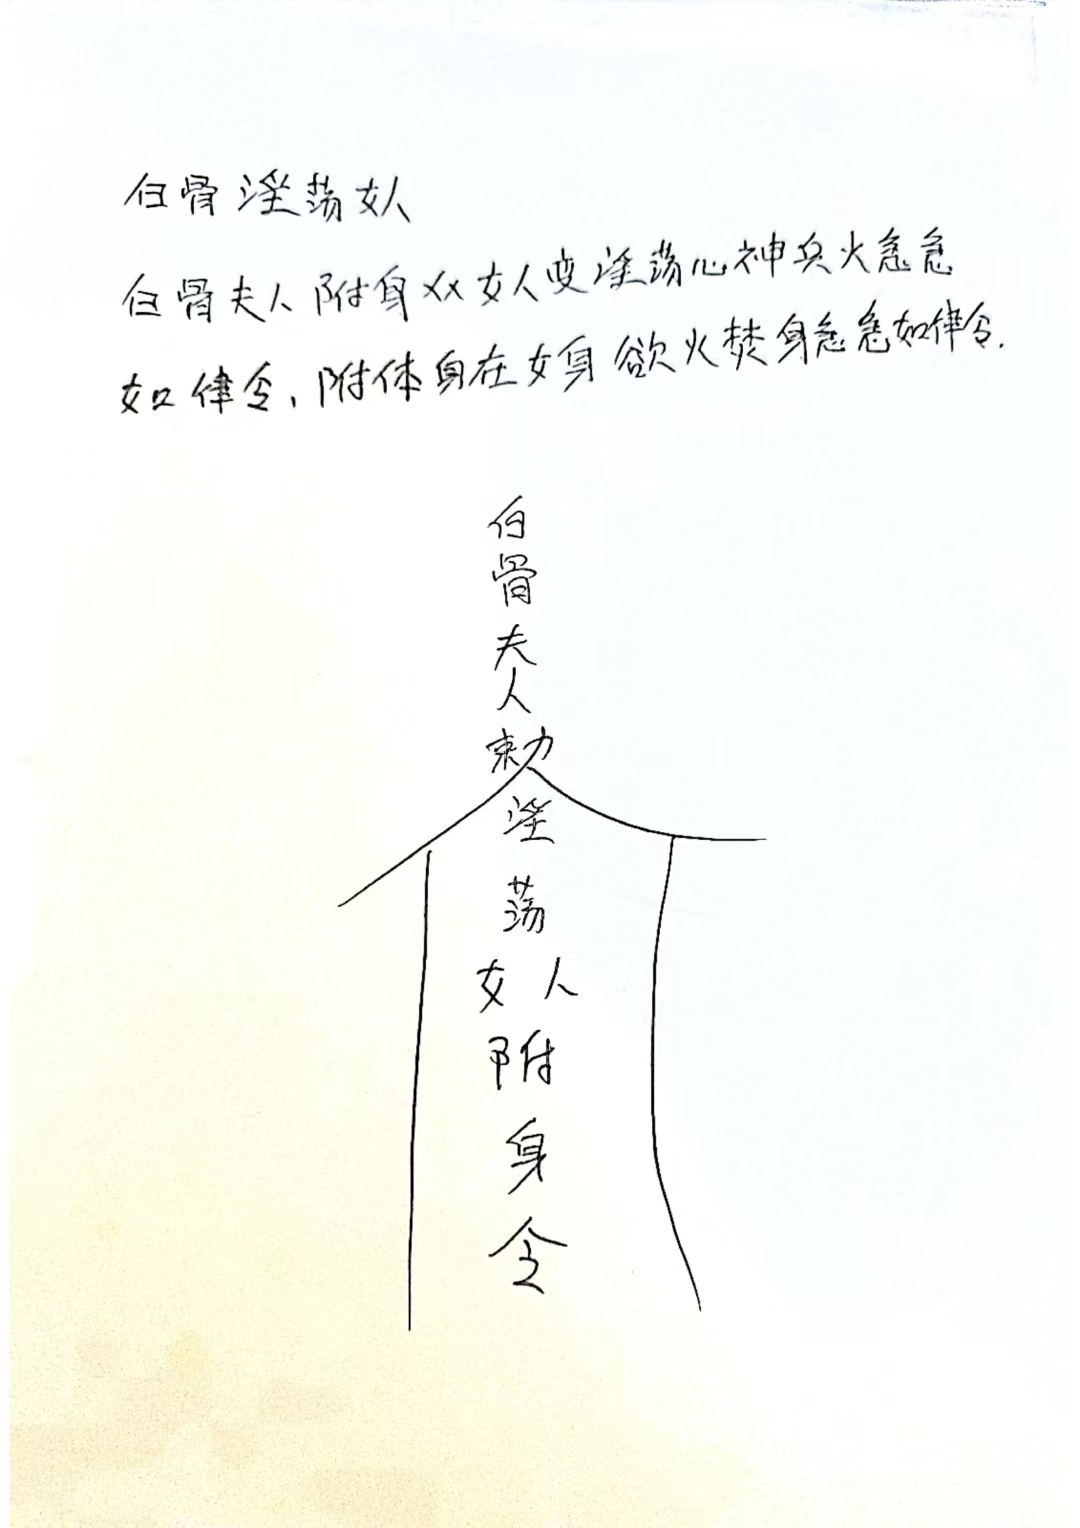 白骨淫荡女人
白骨夫人附身XX女人变淫荡心神兵火急急
如律令、附体身在女身欲火焚身急急如律令.
白
骨
夫
人
敕
淫
荡
女人
附
身
令